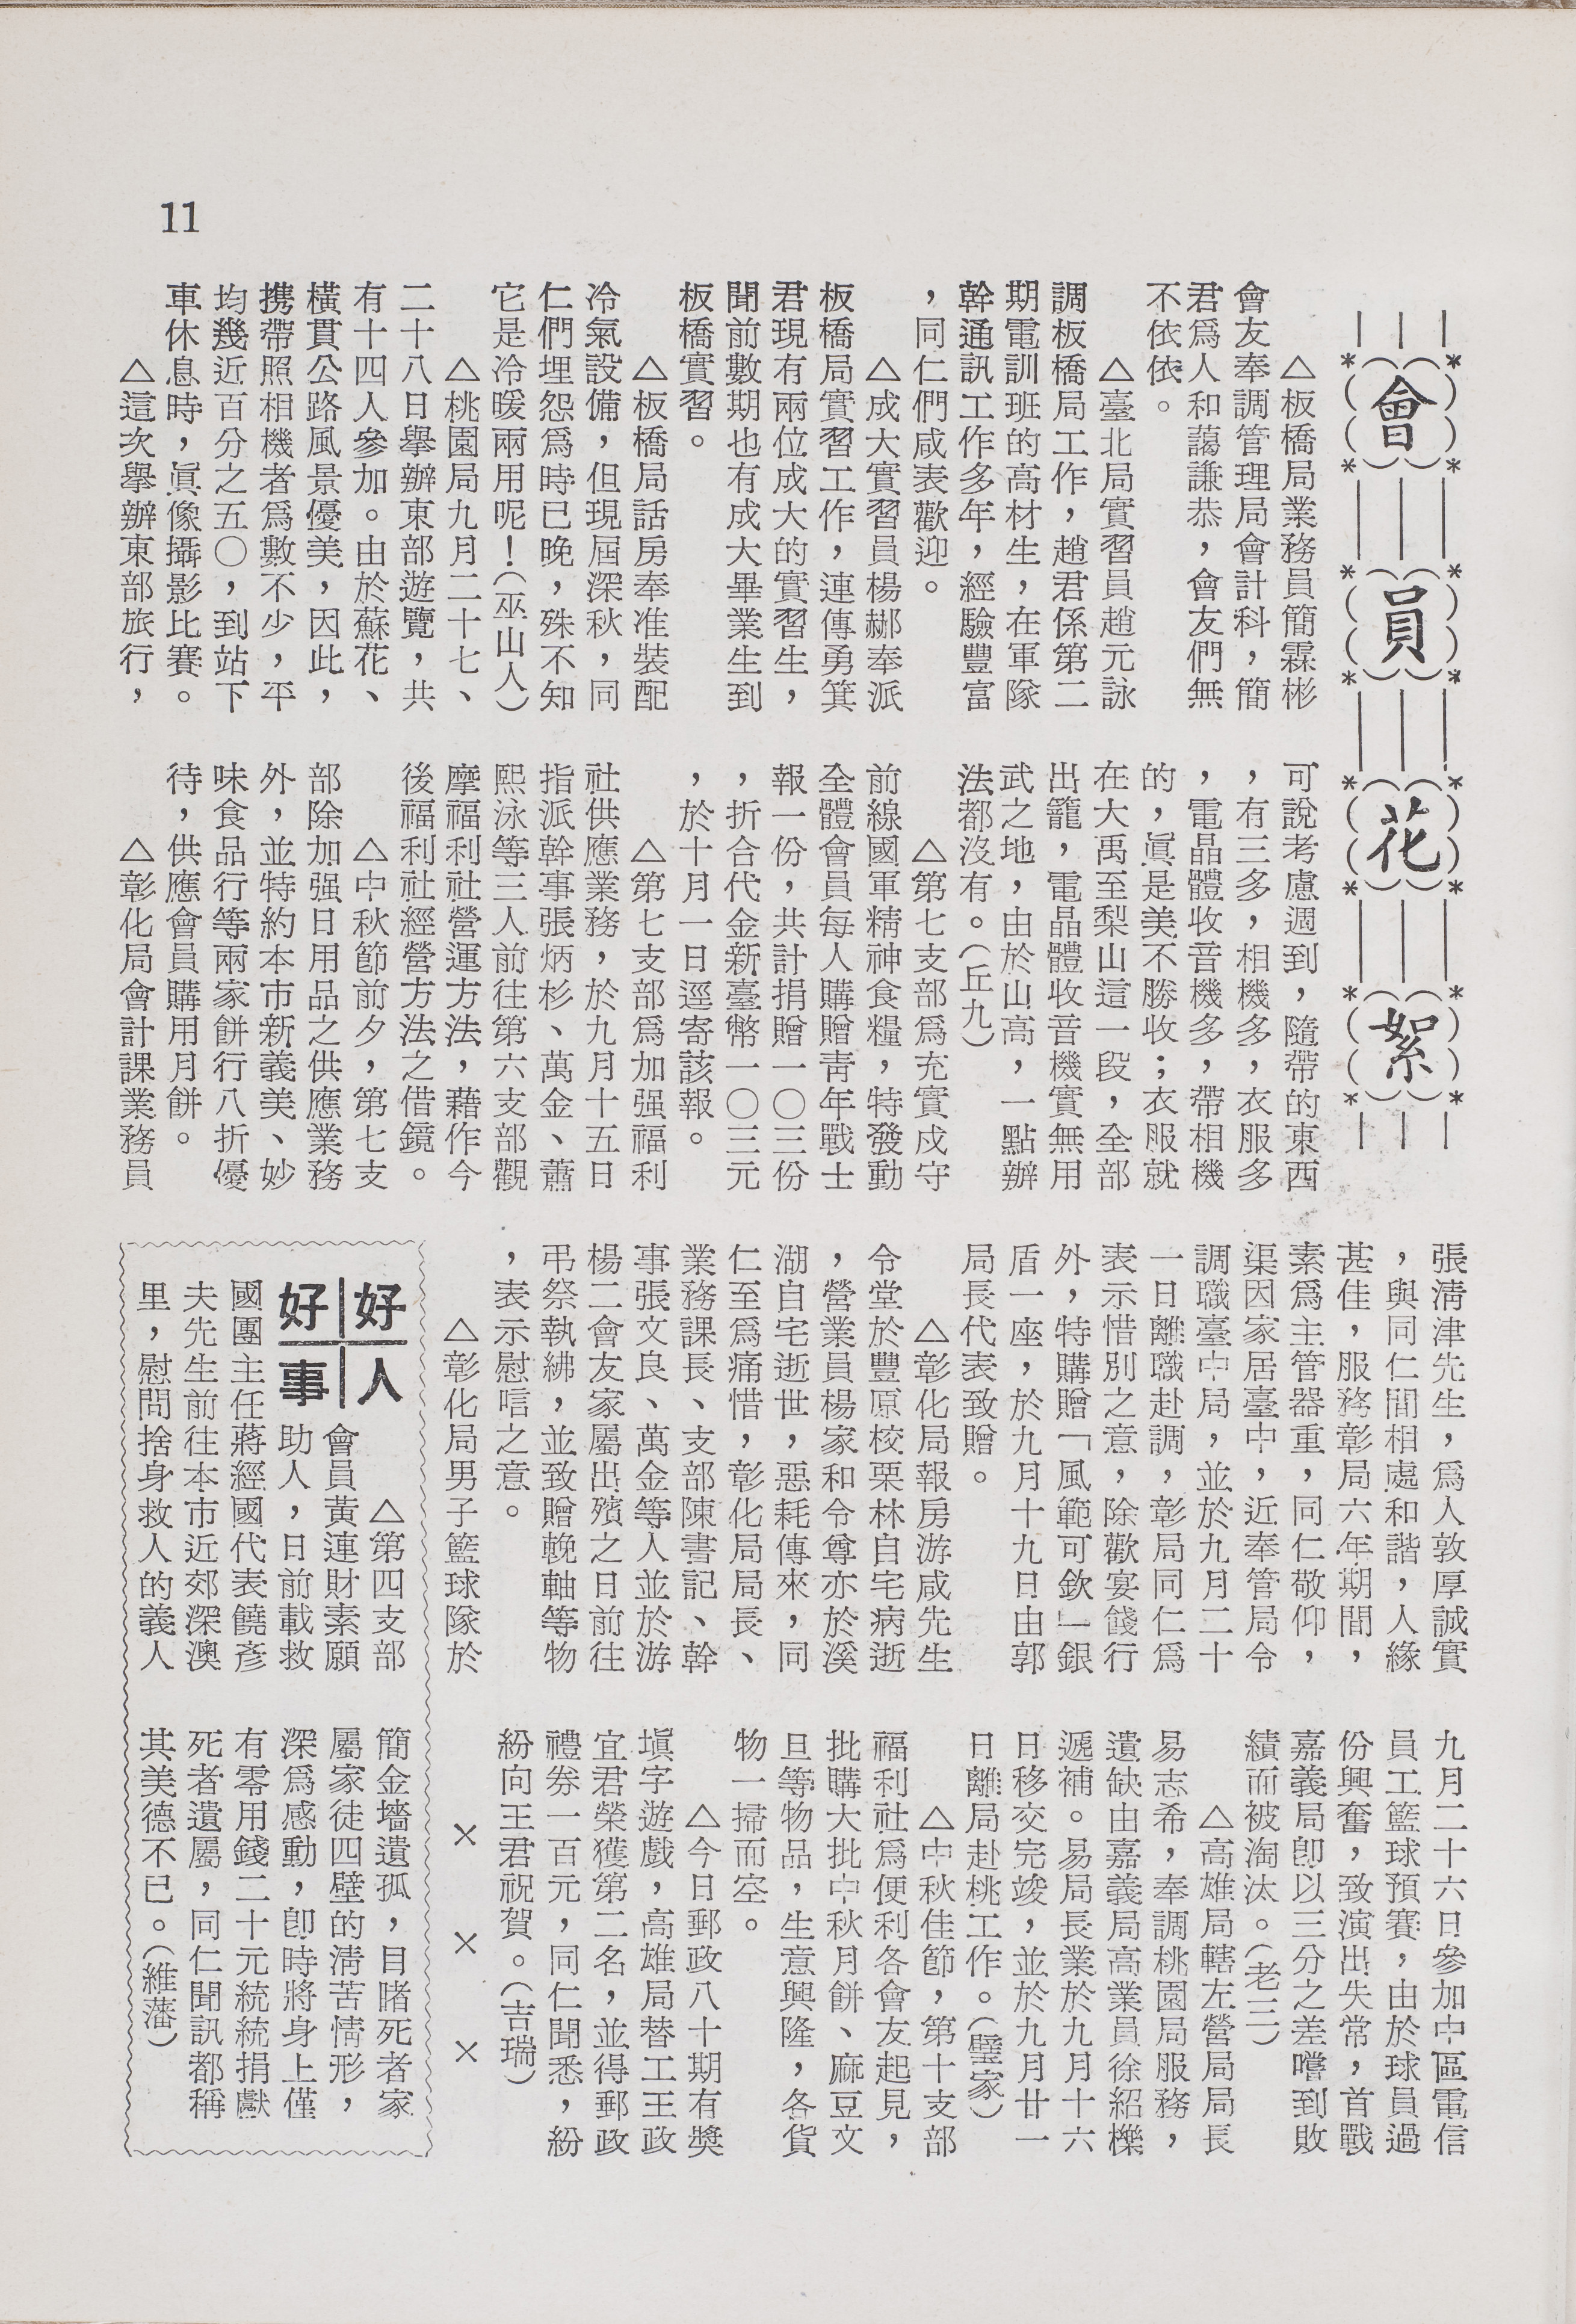 11
會員花絮
△板橋局業務員簡霖彬
會友奉調管理局會計科，簡
君爲人和藹謙恭，會友們無
不依依。
△臺北局實習員趙元詠
調板橋局工作，趙君係第二
期電訓班的高材生，在軍隊
幹通訊工作多年，經驗豐富
，同仁們咸表歡迎。
△成大實習員楊郴奉派
板橋局實習工作，連傳勇箕
君現有兩位成大的實習生，
聞前數期也有成大畢業生到
板橋實習。
△板橋局話房奉准裝配
冷氣設備，但現屆深秋，同
仁們埋怨爲時已晚，殊不知
它是冷暖兩用呢！（巫山人）
△桃園局九月二十七、
二十八日舉辦東部遊覽，共
有十四人參加。由於蘇花、
橫貫公路風景優美，因此，
携帶照相機者爲數不少，平
均幾近百分之五〇，到站下
車休息時，眞像攝影比賽。
△這次舉辦東部旅行，
可說考慮週到，隨帶的東西
，有三多，相機多，衣服多
，電晶體收音機多，帶相機
的，眞是美不勝收；衣服就
在大禹至梨山這一段，全部
出籠，電晶體收音機實無用
武之地，由於山高，一點辦
法都沒有。（丘九）
△第七支部爲充實戍守
前線國軍精神食糧，特發動
全體會員每人購贈靑年戰士
報一份，共計捐贈一〇三份
，折合代金新臺幣一〇三元
，於十月一日逕寄該報。
△第七支部爲加强福利
社供應業務，於九月十五日
指派幹事張炳杉、萬金、蕭
熙泳等三人前往第六支部觀
摩福利社營運方法，藉作今
後福利社經營方法之借鏡。
△中秋節前夕，第七支
部除加强日用品之供應業務
外，並特約本市新義美、妙
味食品行等兩家餅行八折優
待，供應會員購用月餅。
△彰化局會計課業務員
張淸津先生，爲人敦厚誠實
，與同仁間相處和諧，人緣
甚佳，服務彰局六年期間，
素爲主管器重，同仁敬仰，
渠因家居臺中，近奉管局令
調職臺中局，並於九月二十
一日離職赴調，彰局同仁爲
表示惜別之意，除歡宴餞行
外，特購贈「風範可欽」銀
盾一座，於九月十九日由郭
局長代表致贈。
△彰化局報房游咸先生
令堂於豐原校栗林自宅病逝
，營業員楊家和令尊亦於溪
湖自宅逝世，惡耗傳來，同
仁至爲痛惜，彰化局局長、
業務課長、支部陳書記、幹
事張文良、萬金等人並於游
楊二會友家屬出殯之日前往
弔祭執紼，並致贈輓軸等物
，表示慰唁之意。
△彰化局男子籃球隊於
九月二十六日參加中區電信
員工籃球預賽，由於球員過
份興奮，致演出失常，首戰
嘉義局卽以三分之差嚐到敗
績而被淘汰。（老三）
△高雄局轄左營局局長
易志希，奉調桃園局服務，
遺缺由嘉義局高業員徐紹櫟
遞補。易局長業於九月十六
日移交完竣，並於九月廿一
日離局赴桃工作。（璧家）
△中秋佳節，第十支部
福利社爲便利各會友起見，
批購大批中秋月餅、麻豆文
旦等物品，生意興隆，各貨
物一掃而空。
△今日郵政八十期有獎
塡字遊戲，高雄局替工王政
宜君榮獲第二名，並得郵政
禮券一百元，同仁聞悉，紛
紛向王君祝賀。（吉瑞）
×　×　×
好人
好事
△第四支部
會員黃連財素願
助人，日前載救
國團主任蔣經國代表饒彥
夫先生前往本市近郊深澳
里，慰問捨身救人的義人
簡金墻遺孤，目睹死者家
屬家徒四壁的淸苦情形，
深爲感動，卽時將身上僅
有零用錢二十元統統捐獻
死者遺屬，同仁聞訊都稱
其美德不已。（維藩）